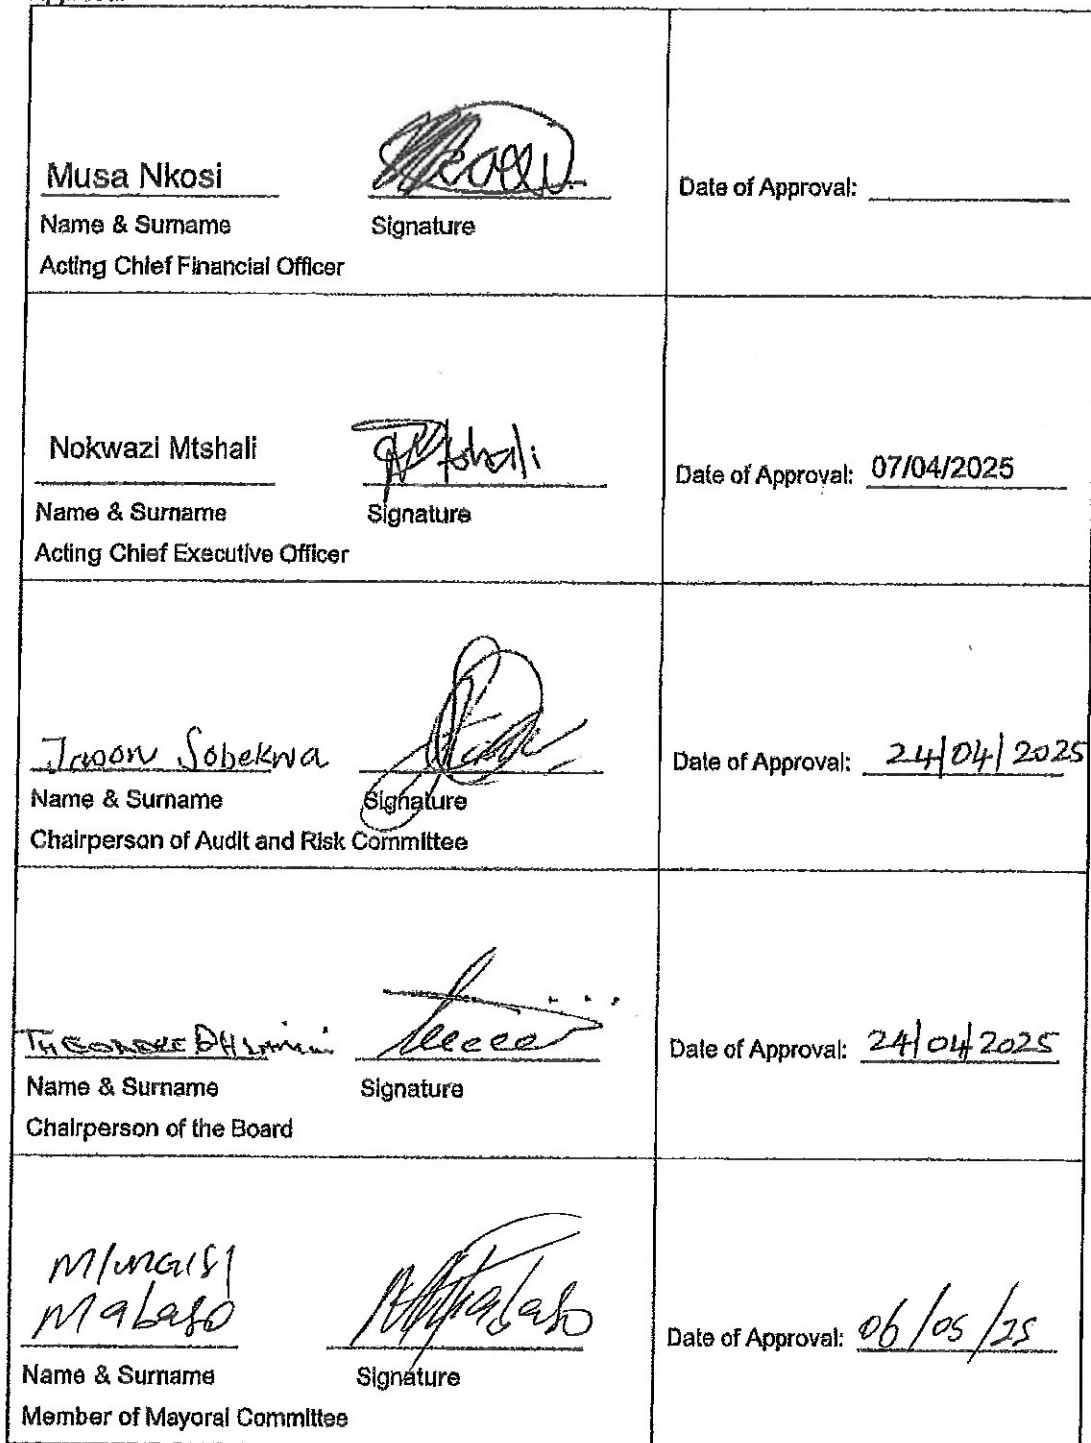 Musa Nkosi
Name & Surname Signature
Acting Chief Financial Officer
Date of Approval:
Nokwazi Mtshali
Name & Surname Signature
Acting Chief Executive Officer
Date of Approval: 07/04/2025
Jason Sobekwa
Name & Surname Signature
Chairperson of Audit and Risk Committee
Date of Approval: 24/04/2025
Theodore Dhlamini
Name & Surname Signature
Chairperson of the Board
Date of Approval: 24/04/2025
Mlungisi
Mabaso
Name & Surname Signature
Member of Mayoral Committee
Date of Approval: 06/05/25